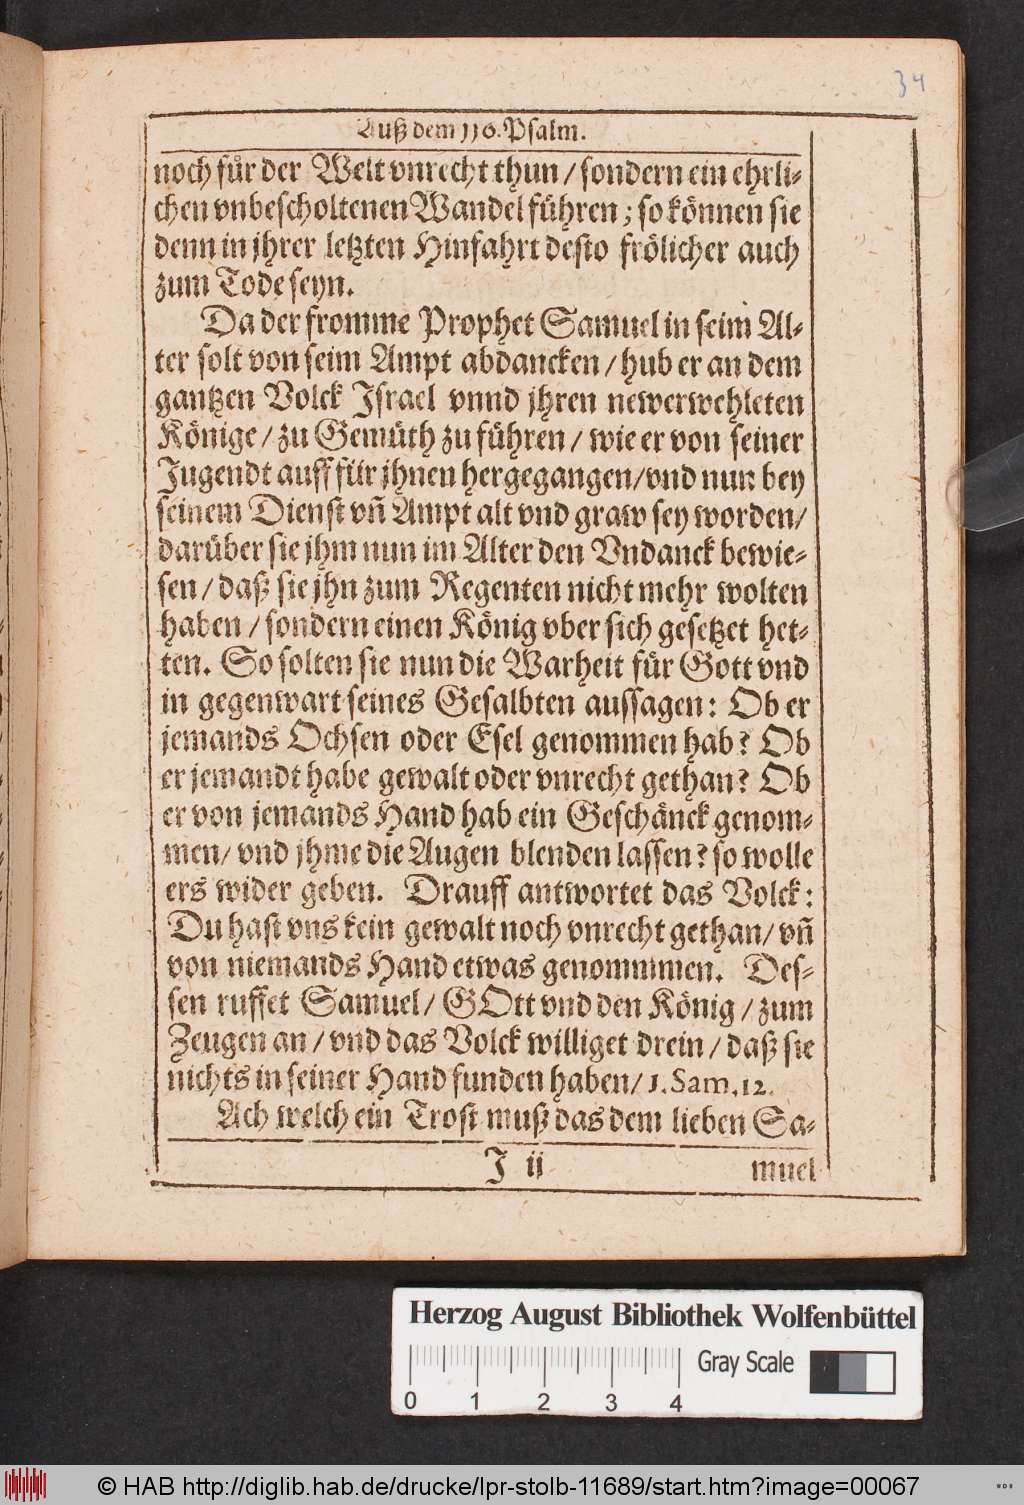 34
Auß dem 116. Psalm.
noch für der Welt vnrecht thun / sondern ein ehrli-
chen vnbescholtenen Wandel führen ; so können sie
denn in jhrer letzten Hinfahrt desto frölicher auch
zum Tode seyn.
Da der fromme Prophet Samuel in seim Al-
ter solt von seim Ampt abdancken / hub er an dem
gantzen Volck Israel vnnd jhren newerwehleten
Könige / zu Gemüth zu führen / wie er von seiner
Jugendt auff für jhnen hergegangen / vnd nun bey
seinem Dienst vñ Ampt alt vnd graw sey worden /
darüber sie jhm nun im Alter den Vndanck bewie-
sen / daß sie jhn zum Regenten nicht mehr wolten
haben / sondern einen König vber sich gesetzet het-
ten. So solten sie nun die Warheit für Gott vnd
in gegenwart seines Gesalbten aussagen: Ob er
jemands Ochsen oder Esel genommen hab? Ob
er jemandt habe gewalt oder vnrecht gethan? Ob
er von jemands Hand hab ein Geschänck genom-
men / vnd jhme die Augen blenden lassen? so wolle
ers wider geben. Drauff antwortet das Volck:
Du hast vns kein gewalt noch vnrecht gethan / vñ
von niemands Hand etwas genommmen. Des-
sen ruffet Samuel / GOtt vnd den König / zum
Zeugen an / vnd das Volck williget drein / daß sie
nichts in seiner Hand funden haben / 1. Sam. 12.
Ach welch ein Trost muß das dem lieben Sa-
J ij
muel
Herzog August Bibliothek Wolfenbüttel
Gray Scale
0 1 2 3 4
© HAB http://diglib.hab.de/drucke/lpr-stolb-11689/start.htm?image=00067